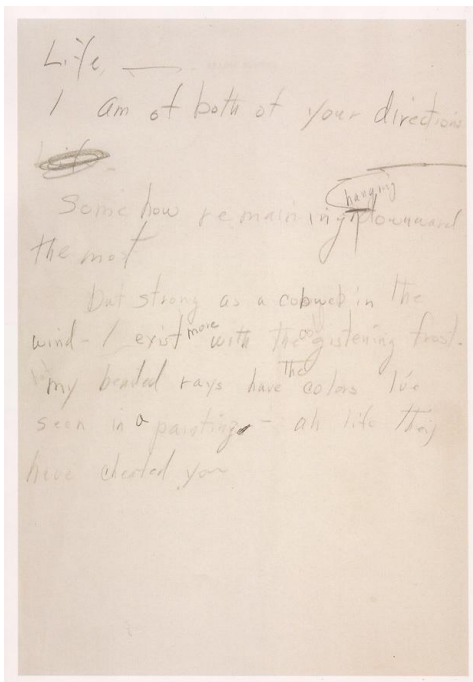 Life, —
I am of both of your directions
Life
Somehow remaining hanging downward
the most
but strong as a cobweb in the
wind - I exist more with the cold glistening frost.
my beaded rays have the colors I've
seen in a painting - ah life they
have cheated you